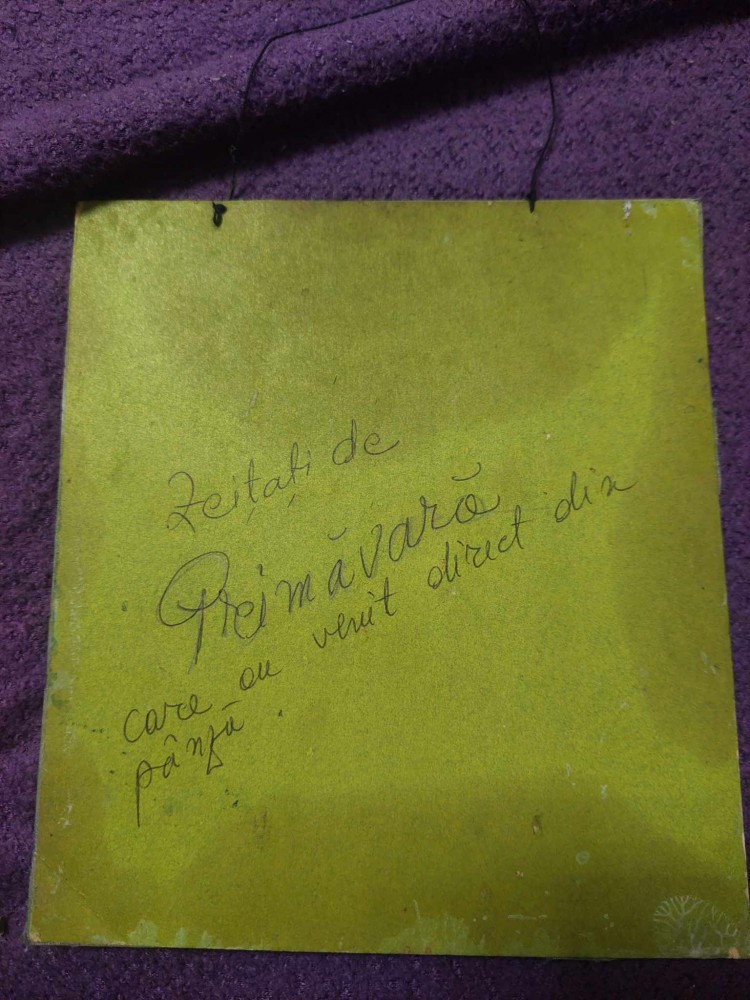 Zeități de
Primăvară
care au venit direct din
pânză.